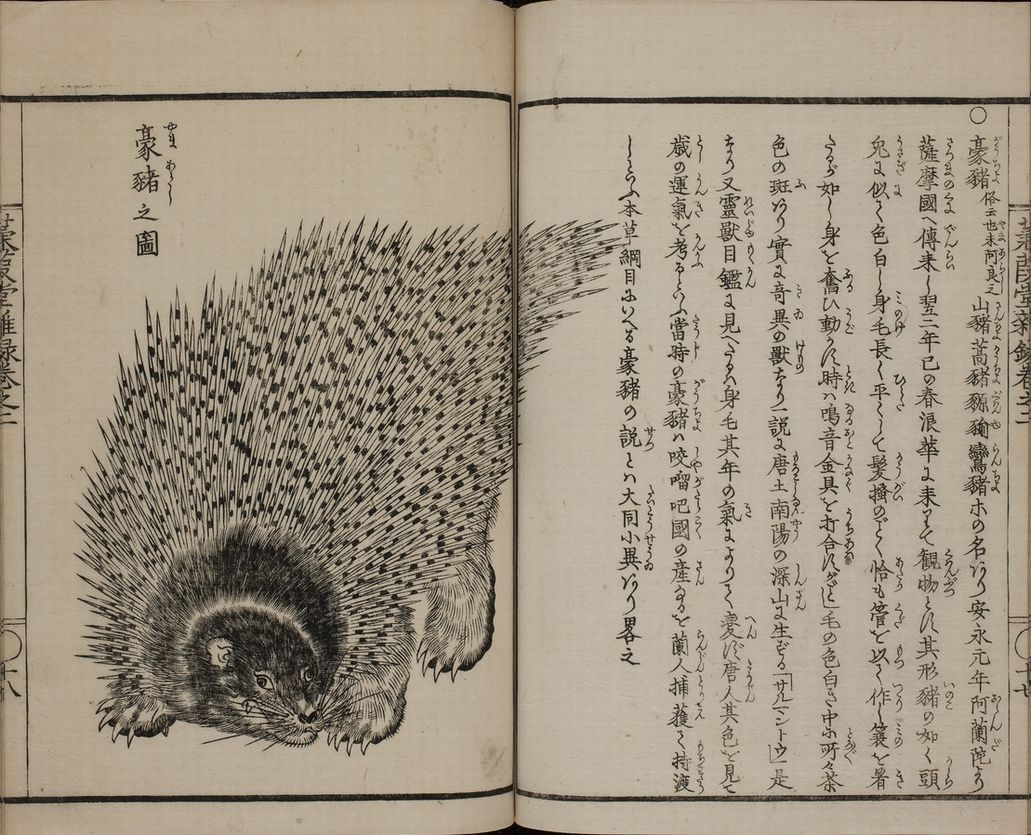 ○豪豬 俗云也末阿良之 山豬蒿豬豲貐鸞豬ホの名あり安永元年阿蘭陀より
薩摩國へ傳来し翌二年巳の春浪華に来りて観物とす其形豬の如く頭
兎に似て色白し身毛長く平くして髪搔のごとく恰も管を以て作し簑を着
たるが如し身を奮ひ動かす時ハ鳴音金具を打合すがごとし毛の色白き中に所々茶
色の斑あり實に奇異の獣なり一説に唐土南陽の深山に生ずる
なり又靈獣目鑑に見へたるハ身毛其年の氣によりて変ず唐人其色を見て
歳の運氣を考るといふ當時の豪豬ハ咬𠺕吧國の産なるを蘭人捕獲て持渡
しといふ本草綱目にいへる豪豬の説とハ大同小異あり畧之
豪豬之圖
やまあらし
蒹葭堂雜録巻之二
十七
蒹葭堂雜録巻之二
十八